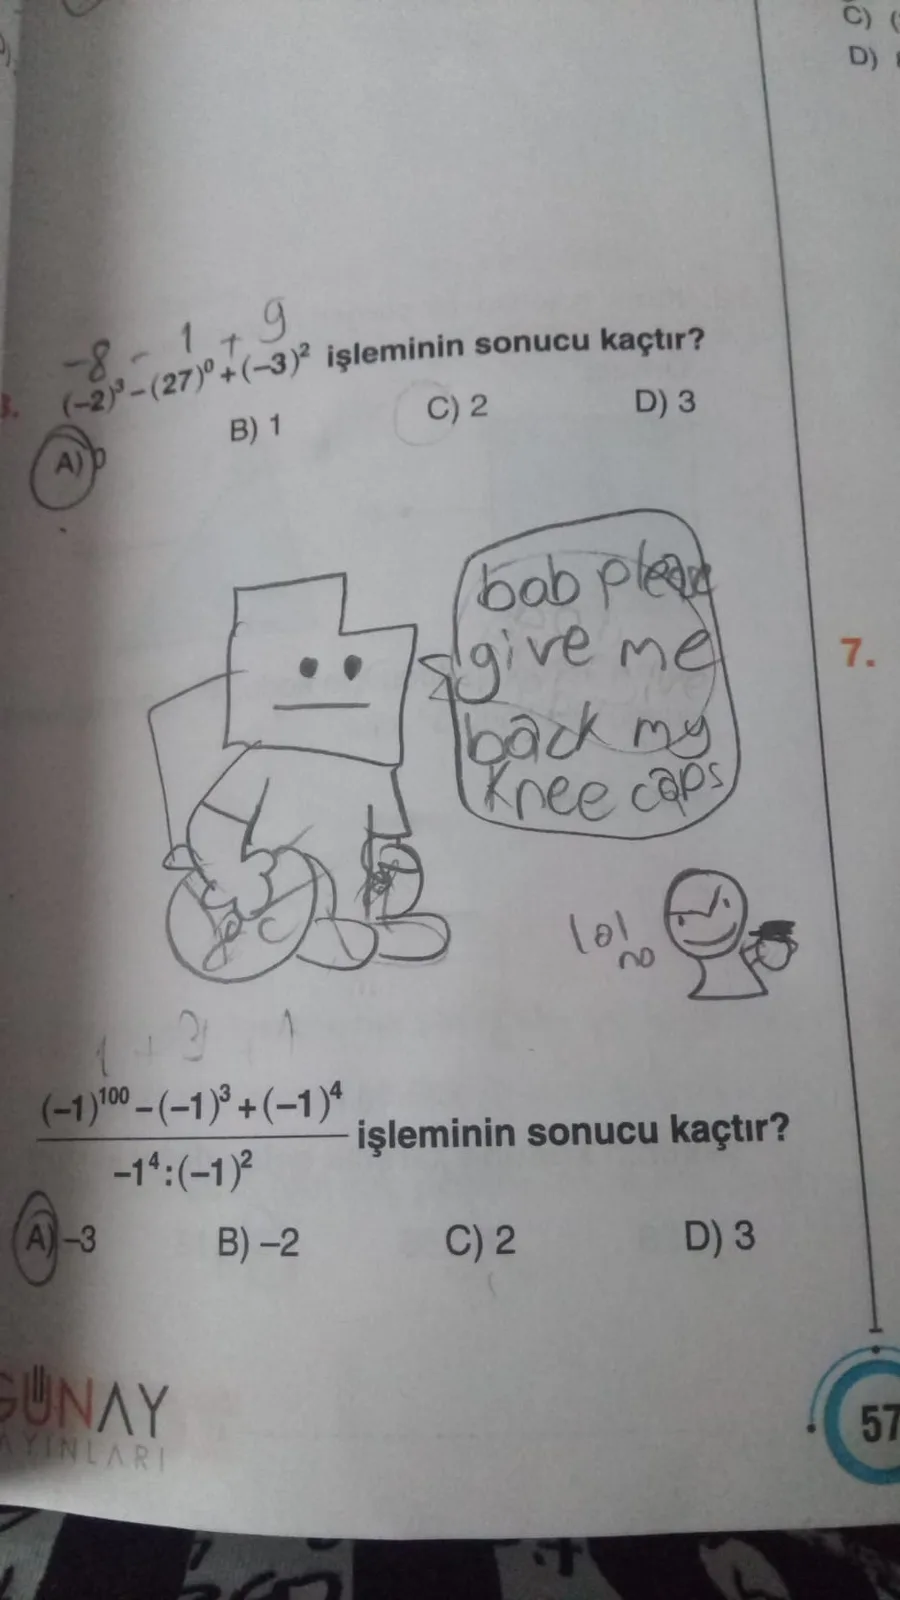 C)
D)
-8 - 1 + 9
(-2)³-(27)⁰+(-3)² işleminin sonucu kaçtır?
A) 0 B) 1 C) 2 D) 3
bob please
give me
back my
knee caps
7.
lol
no
1 + 1
(-1)¹⁰⁰-(-1)³+(-1)⁴
-1⁴:(-1)² işleminin sonucu kaçtır?
A) -3 B) -2 C) 2 D) 3
GÜNAY
YAYINLARI
57